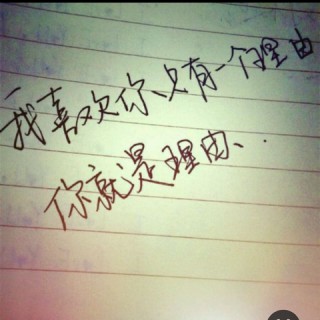 我喜欢你、只有一个理由
你就是理由、..